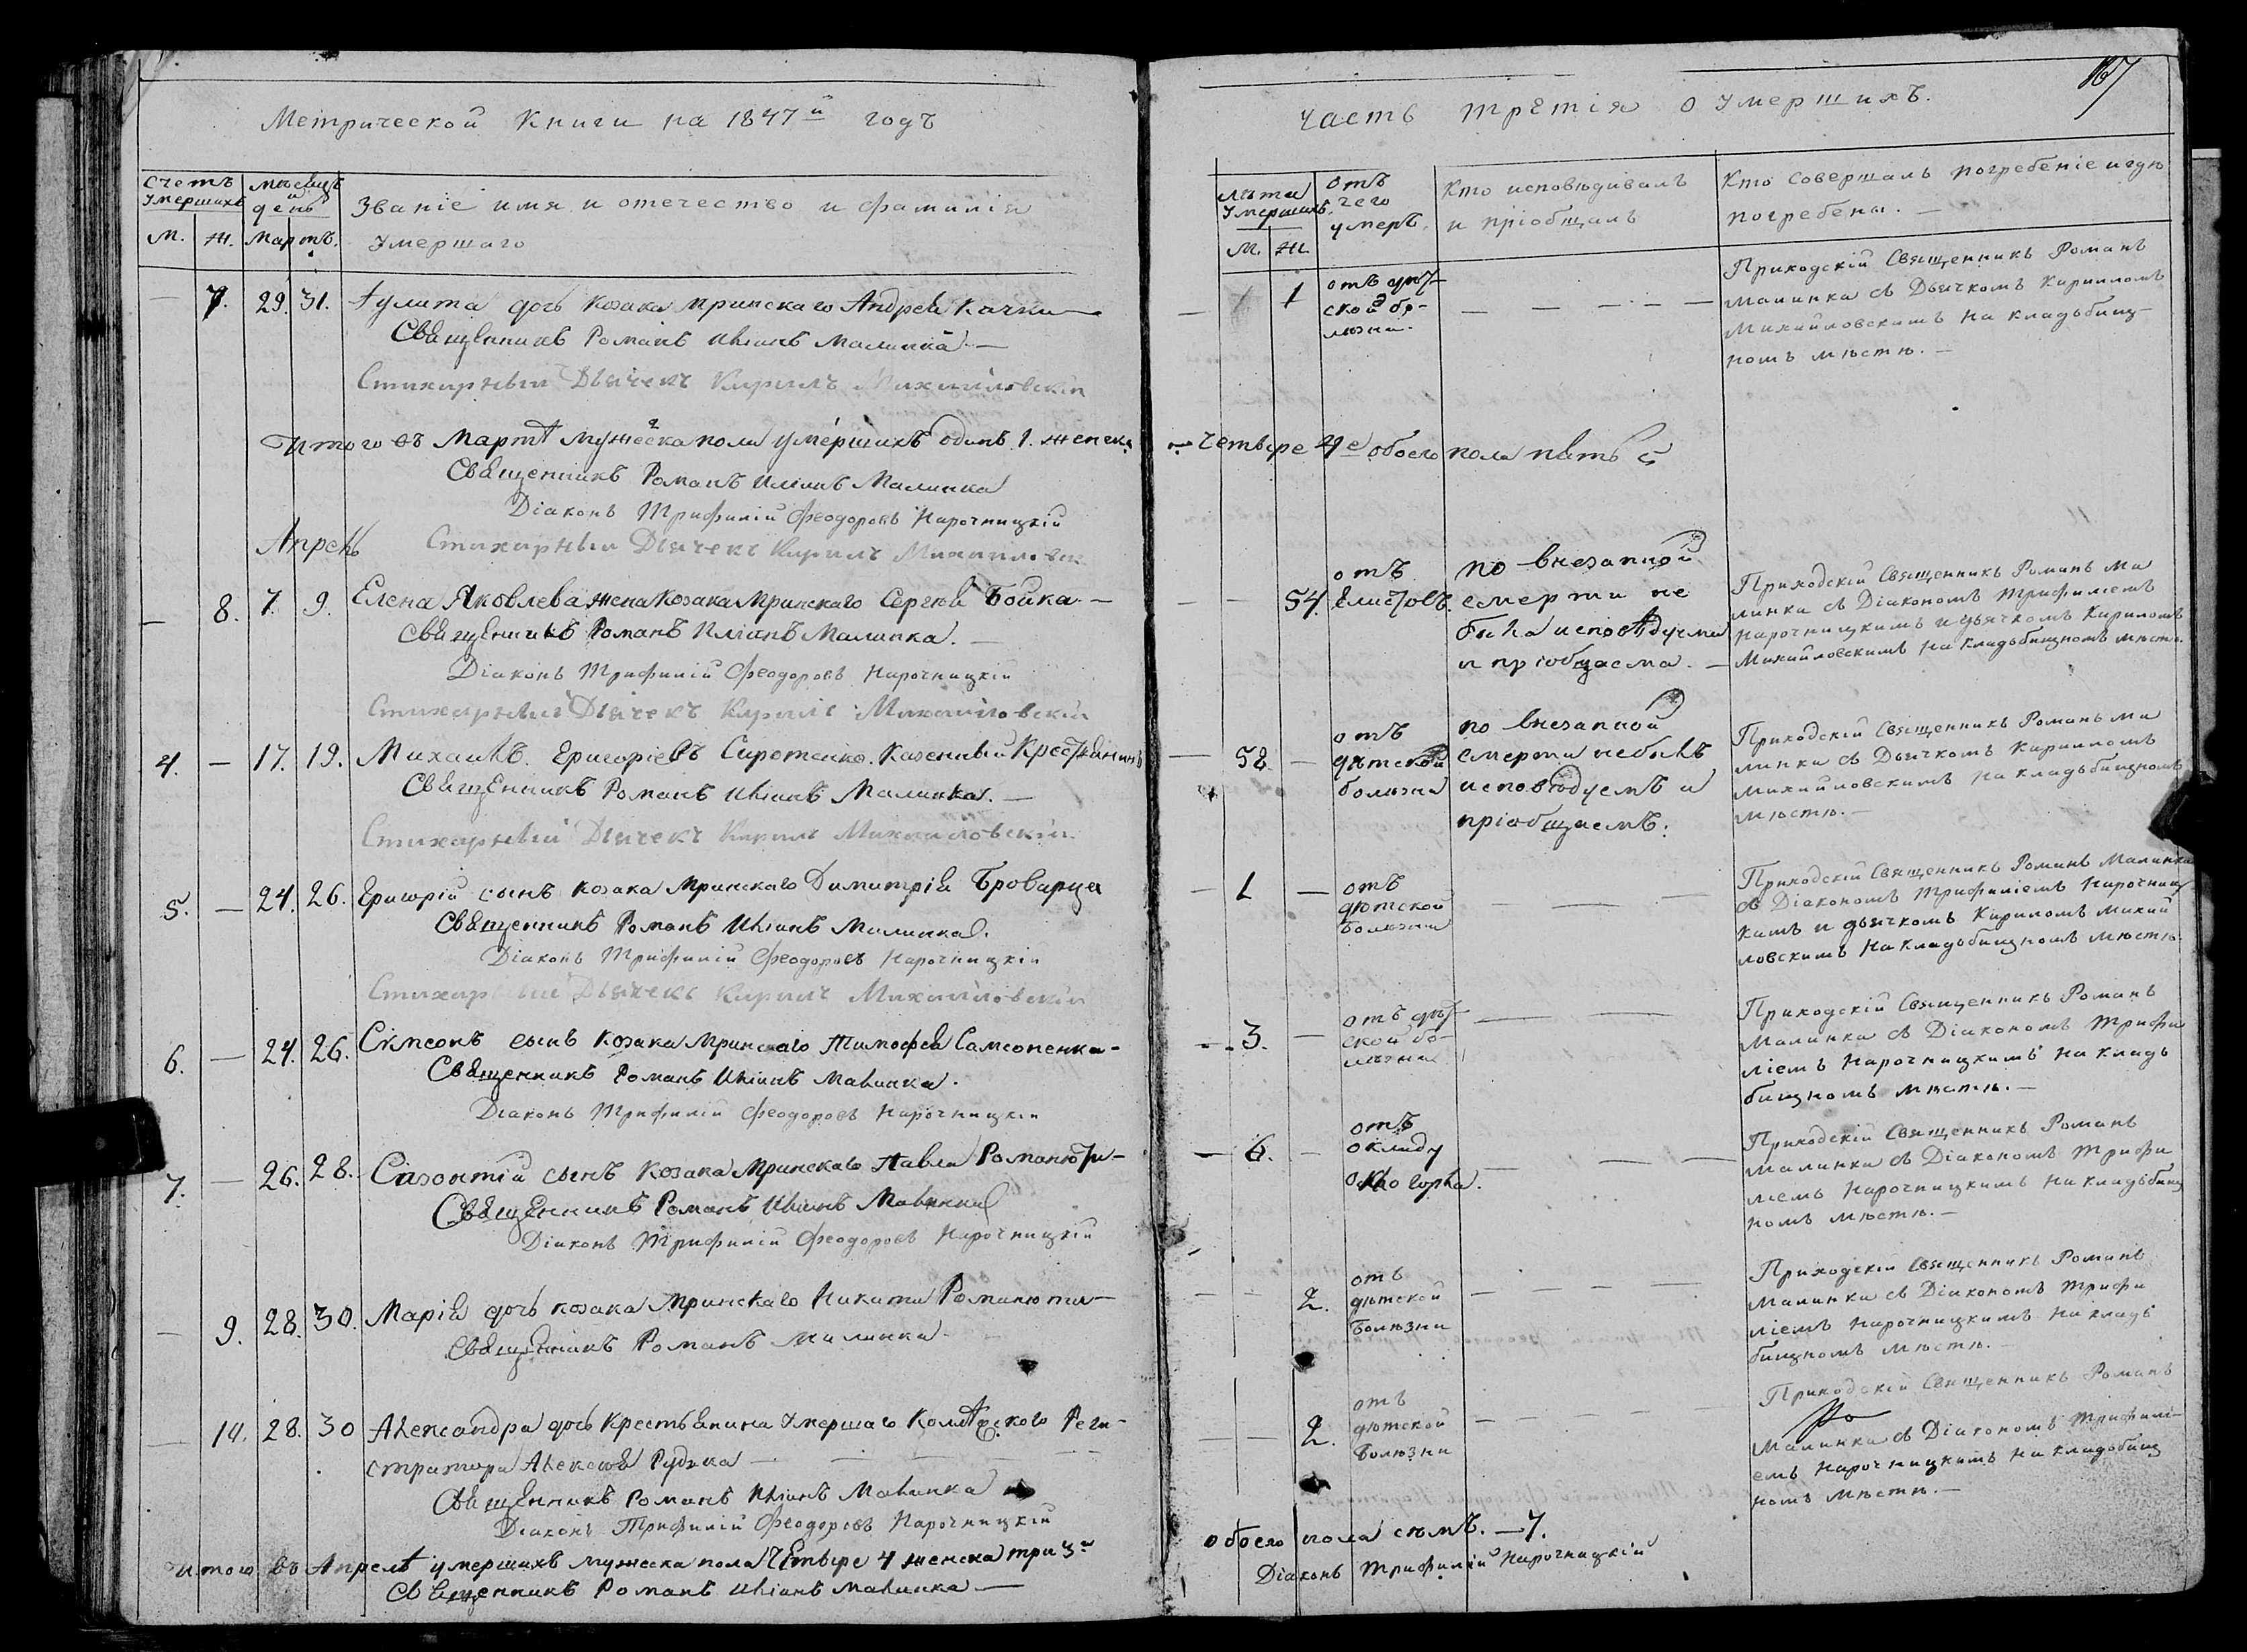 Метрической Книги на 1847й годъ
Счетъ Умершихъ
мѣсяцъ и день
Званіе имя и отечество и фамилія
Умершаго
М. Ж. Мартъ.
— 7. 29. 31. Іулита дочь козака мринскаго Андрея Качки —
Священникъ Романъ Иліинъ Малинка —
Стихарный Дьячекъ Кирилъ Михайловскій
Итого въ Мартѣ мужеска пола умершихъ одинъ 1. женска
Священникъ Романъ Иліинъ Малинка
Діаконъ Трифилій Феодоровъ Нарочницкій
Апрель Стихарный Дьячекъ Кирилъ Михайловскій
— 8. 7. 9. Елена Яковлева жена козака Мринскаго Сергѣя Бойка —
Священникъ Романъ Иліинъ Малинка. —
Діаконъ Трифилій Феодоровъ Нарочницкій
Стихарный Дьячекъ Кирилъ Михайловскій
4. — 17. 19. Михаилъ Григоріевъ Сиротенко. Казенный Крестьянинъ
Священникъ Романъ Иліинъ Малинка. —
Стихарный Дьячекъ Кирилъ Михайловскій
5. — 24. 26. Григорій сынъ козака Мринскаго Димитрія Броварца
Священникъ Романъ Иліинъ Малинка.
Діаконъ Трифилій Феодоровъ Нарочницкій
Стихарный Дьячекъ Кирилъ Михайловскій
6. — 24. 26. Симеонъ сынъ козака Мринскаго Тимофея Самсоненка —
Священникъ Романъ Иліинъ Малинка.
Діаконъ Трифилій Феодоровъ Нарочницкій
7. — 26. 28. Созонтій сынъ козака Мринскаго Павла Романюти —
Священникъ Романъ Иліинъ Малинка
Діаконъ Трифилій Феодоровъ Нарочницкій
— 9. 28. 30. Марія дочь козака Мринскаго Никиты Романюти —
Священникъ Романъ Малинка
— 10. 28. 30 Александра дочь Крестьянина Умершаго Колѣжского Реги-
стратора Алексѣя Рудка —
Священникъ Романъ Иліинъ Малинка
Діаконъ Трифилій Феодоровъ Нарочницкій
Итого въ Апрелѣ умершихъ мужеска пола четыре 4 женска три 3и
Священникъ Романъ Иліинъ Малинка —
167
Часть третія о умершихъ.
Лѣта Умершихъ
отъ чего умеръ.
Кто исповѣдывалъ и пріобщалъ
Кто совершалъ погребеніе и гдѣ погребены. —
М. Ж.
— 1 отъ дѣт-
ской бо-
лѣзни.
Приходскій Священникъ Романъ
Малинка съ Дьячкомъ Кириломъ
Михайловскимъ на кладьбищ-
номъ мѣстѣ. —
— четыре 4е обоего пола пять 5
— — 54. отъ
Елистовъ.
по внезапной
смерти не
была исповѣдуема
и пріобщаема. —
Приходскій Священникъ Романъ Ма
линка съ Діакономъ Трифиліемъ
Нарочницкимъ и дьячкомъ Кириломъ
Михайловскимъ на кладобищномъ мѣстѣ.
— 52 — отъ
дѣтской
болѣзни
по внезапной
смерти небылъ
исповѣдуемъ и
пріобщаемъ.
Приходскій Священникъ Романъ Ма
линка съ Дьячкомъ Кириломъ
Михайловскимъ на кладьбищномъ
мѣстѣ. —
— 1 — отъ
дѣтской
болѣзни
Приходскій Священникъ Романъ Малинка
съ Діакономъ Трифиліемъ Нарочниц
кимъ и дьячкомъ Кириломъ Михай
ловскимъ на кладобищномъ мѣстѣ.
— 3. — отъ дѣт-
ской бо-
лѣзни
Приходскій Священникъ Романъ
Малинка съ Діакономъ Трифи
ліемъ Нарочницкимъ на кладь
бищномъ мѣстѣ. —
— 6. — отъ
окладу
Приходскій Священникъ Романъ
Малинка съ Діакономъ Трифи
ліемъ Нарочницкимъ на кладьбищ
номъ мѣстѣ. —
— — 2. отъ
дѣтской
болѣзни
Приходскій Священникъ Романъ
Малинка съ Діакономъ Трифи
ліемъ Нарочницкимъ на кладь
бищномъ мѣстѣ. —
— — 2. отъ
дѣтской
болѣзни
Приходскій Священникъ Романъ
Малинка съ Діакономъ Трифилі-
емъ Нарочницкимъ на кладобищ
номъ мѣстѣ. —
обоего пола сѣмъ. — 7.
Діаконъ Трифилій Нарочницкій